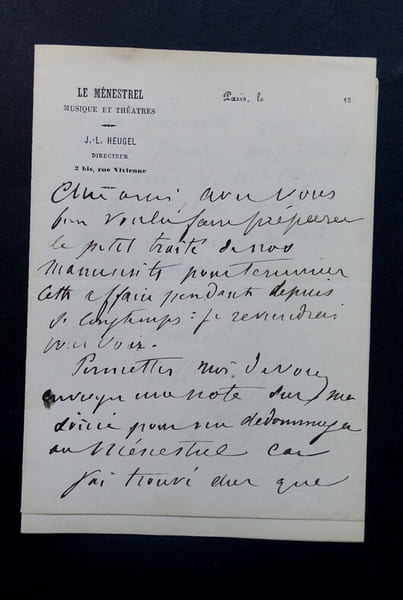 LE MÉNESTREL
MUSIQUE ET THÉATRES
Paris, le 18
J.-L. HEUGEL
DIRECTEUR
2 bis, rue Vivienne
Cher ami, avez vous
bien voulu faire préparer
le petit traité de nos
manuscrits pour terminer
cette affaire pendante depuis
si longtemps : je reviendrai
vous voir.
Permettez moi de vous
envoyer une note sur ma
soirée pour me dédommager
au Ménestrel car
j'ai trouvé cher que